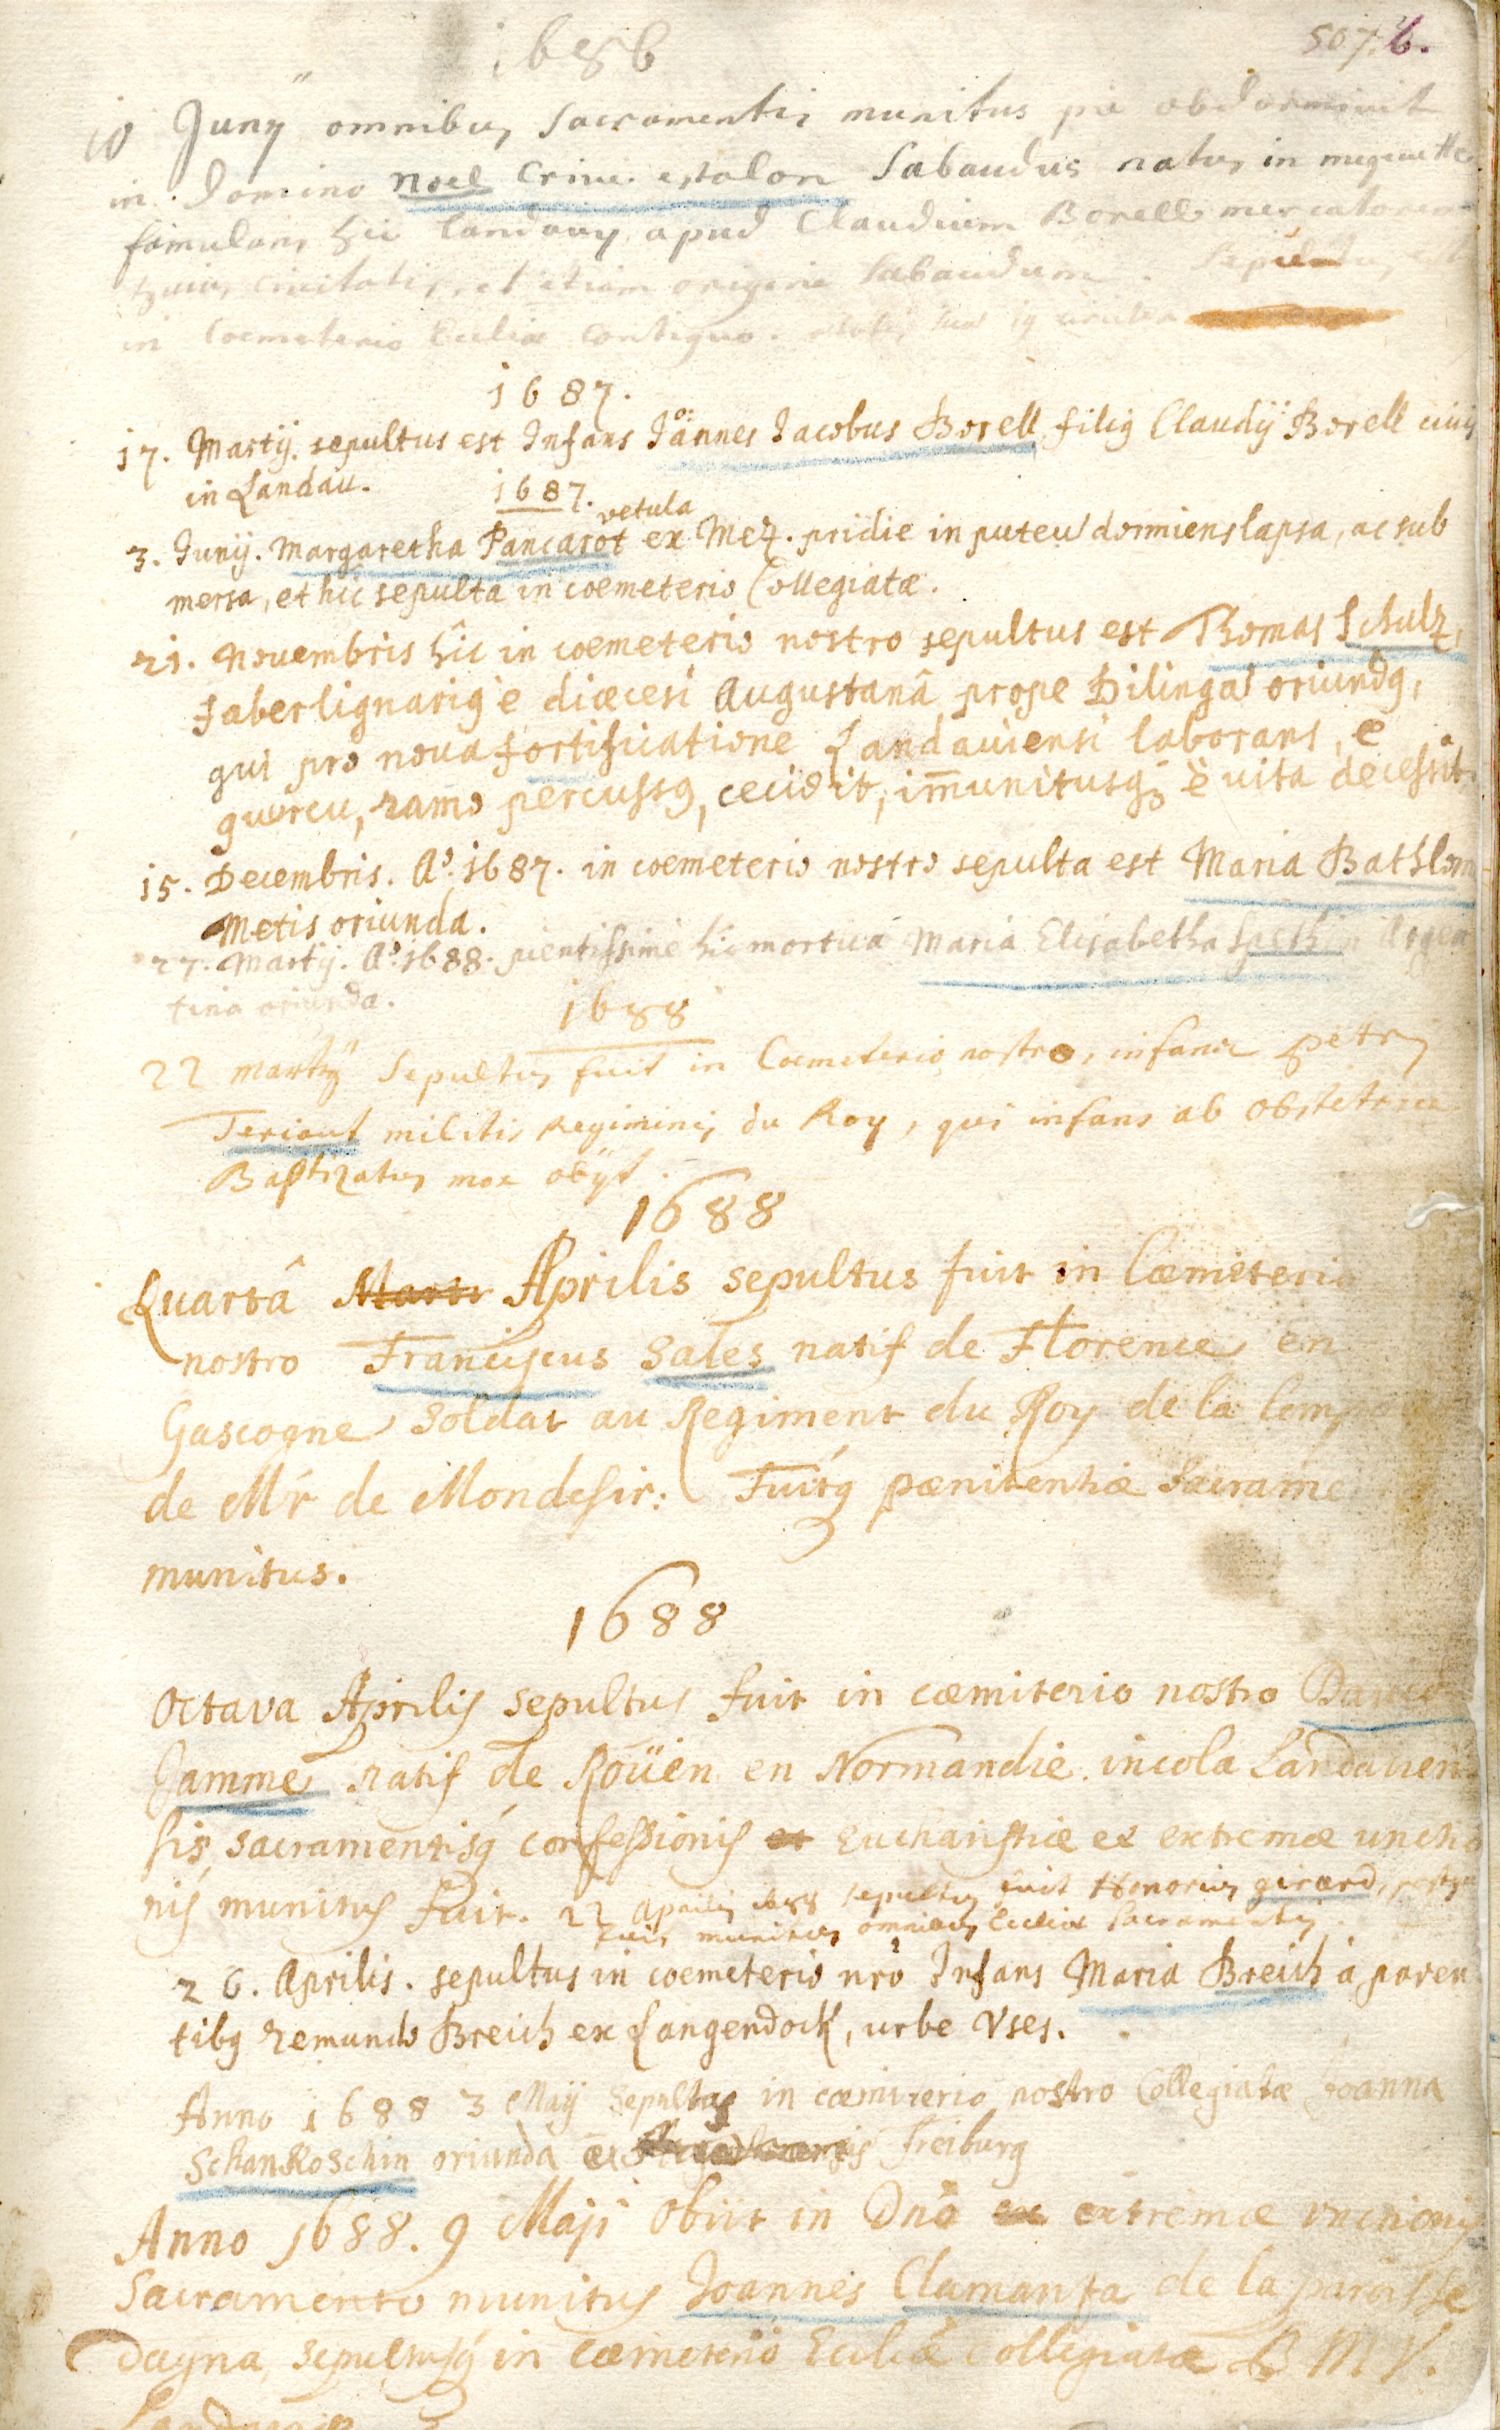 1686
507. 6.
10 Junÿ omnibus Sacramentis munitus pie obdormivit
in Domino Noel Sabaudus natus in
famulans hic Landavÿ apud Claudium Borell mercatorem
huius civitatis, et etiam origine Sabaudum. Sepultus est
in Coemeterio Eccliæ contiguo.
1687.
17. Martÿ. sepultus est Infans Joañes Jacobus Borell filig Claudÿ Borell civis
in Landau.
1687.
vetula
3. Junÿ. Margaretha Pancarot ex Mez. pridie in puteu dormiens lapsa, ac sub
mersa, et hîc sepulta in coemeterio Collegiatæ.
21. Novembris hîc in coemeterio nostro sepultus est Thomas Schulz,
faber lignarig è diæcesi Augustanâ prope Dilinga oriundg,
qui pro nova fortificatione Landaviensi laborans, e
quercu, ramo percussg, cecidit, im̄unitusq è vita decessit.
15. Decembris. Ao. 1687. in coemeterio nostro sepulta est Maria
Metis oriunda.
27. Martÿ. Ao. 1688. pientissime hic mortua Maria Elisabetha Argen
tina oriunda.
1688
22 martÿ Sepultus fuit in Coemeterio nostro, infans petri
Teriout militis Regiminis du Roy, qui infans ab obstetrice
Baptizatus mox obÿt.
1688
Quartâ Marti Aprilis sepultus fuit in Cœmeterio
nostro Franciscus Sales natif de Florence en
Gascogne Soldat au Regiment du Roy de la
de Mr de Mondesir: Fuitq pænitentiæ Sacrame
munitus.
1688
Octava Aprilis sepultus fuit in cœmiterio nostro
Jamme natif de Roüen en Normandie incola Landavien
sis, sacramentisq confessionis et Eucharistiæ et extremæ unctio
nis munitus fuit. 22 Aprilis 1688 sepultus fuit Honorius girard,
munitus omnibus Eccliæ Sacramentis.
26. Aprilis. sepultus in coemeterio nrō Infans Maria Breich à paren
tibg Remundo Breich ex Langendock, urbe Vses.
Anno 1688 3 Maÿ Sepulta in cœmiterio nostro Collegiatæ Joanna
Schankoschin oriunda ex Freiburg
Anno 1688. 9 Maji obiit in Dnō ex extremæ vnctionis
Sacramento munitus Joannes Clamanta de la paroisse
Dagna, sepultusq in Cœmeterio Eccliæ Collegiatæ B M V.